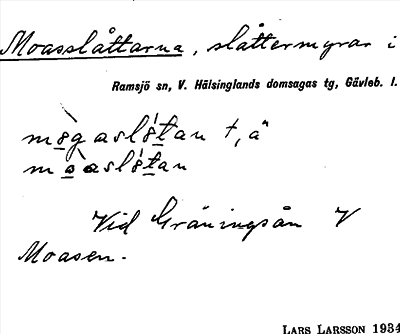 Moasslåttarna, slåttermyrar i
Ramsjö sn, V. Hälsinglands domsagas tg, Gävleb. l.
mògaslǿtan †, ä
mòaslǿtan
Vid Gräningsån V
Moasen.
LARS LARSSON 1934